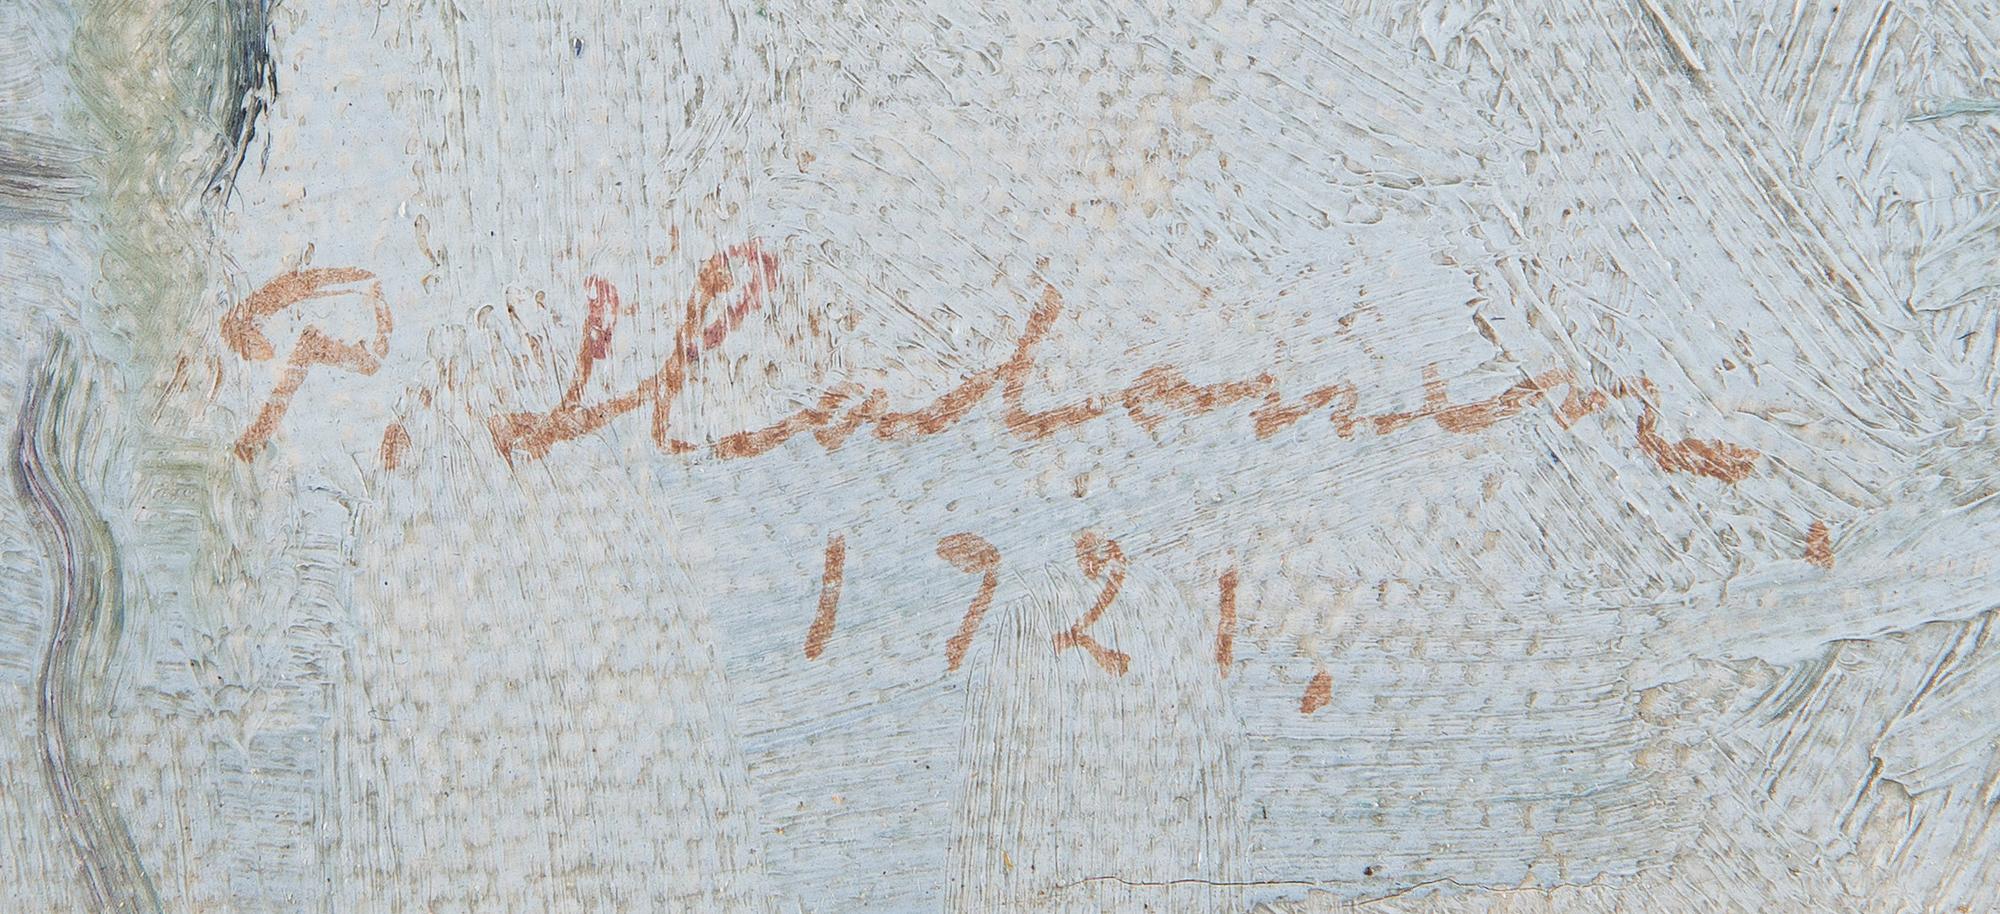 P. Halonen
1921.